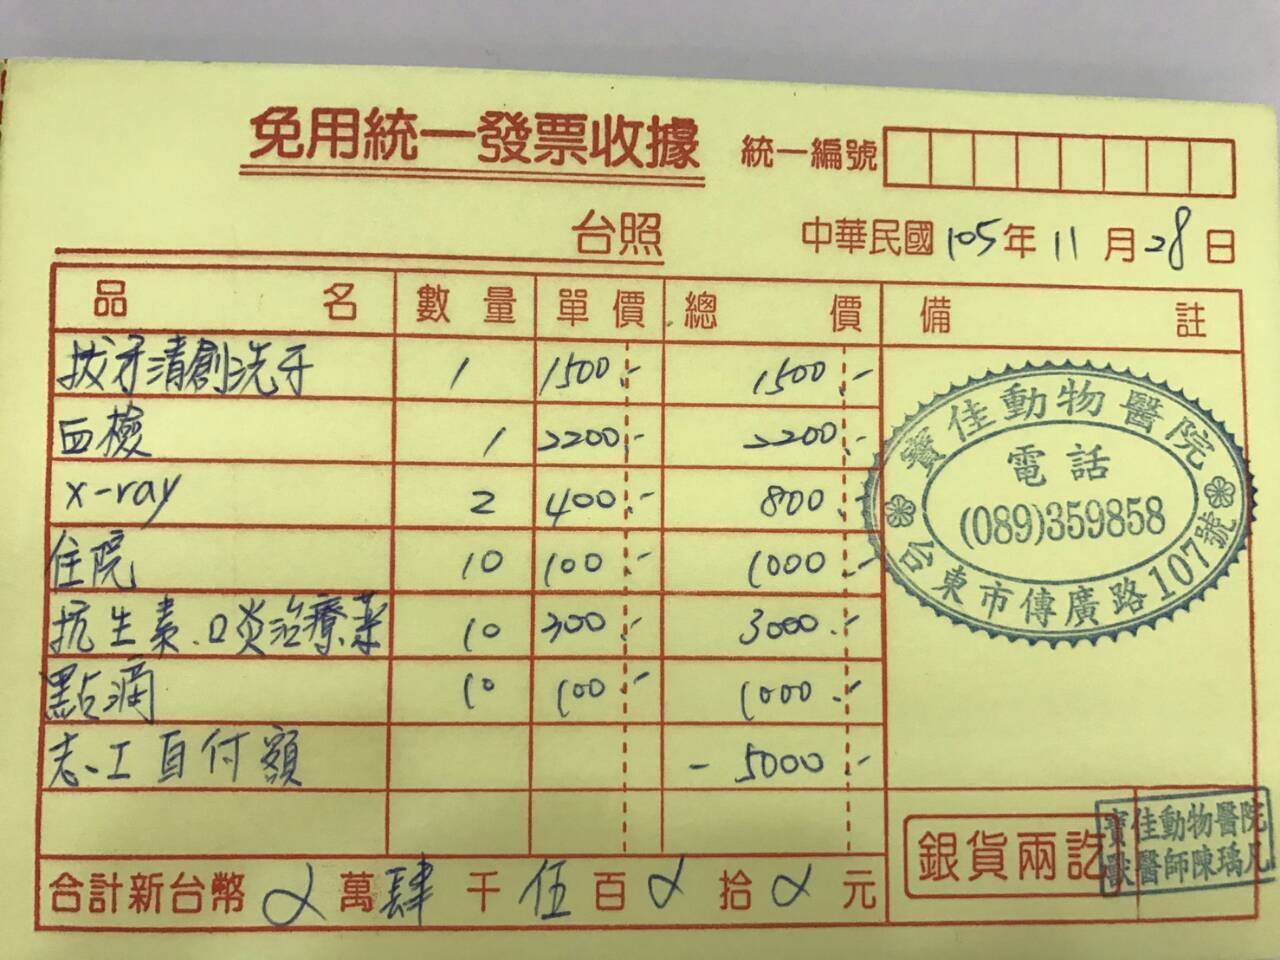 免用統一發票收據 統一編號
台照 中華民國105年11月28日
品名 數量 單價 總價 備註
拔牙清創洗牙 1 1500.- 1500.-
血檢 1 2200.- 2200.-
x-ray 2 400.- 800.-
住院 10 100.- 1000.-
抗生素、口炎治療藥 10 300.- 3000.-
點滴 10 100.- 1000.-
志工自付額 -5000.-
寶佳動物醫院
電話
(089)359858
台東市傳廣路107號
合計新台幣 萬肆千伍百 拾 元
銀貨兩訖
寶佳動物醫院
獸醫師陳瑀凡